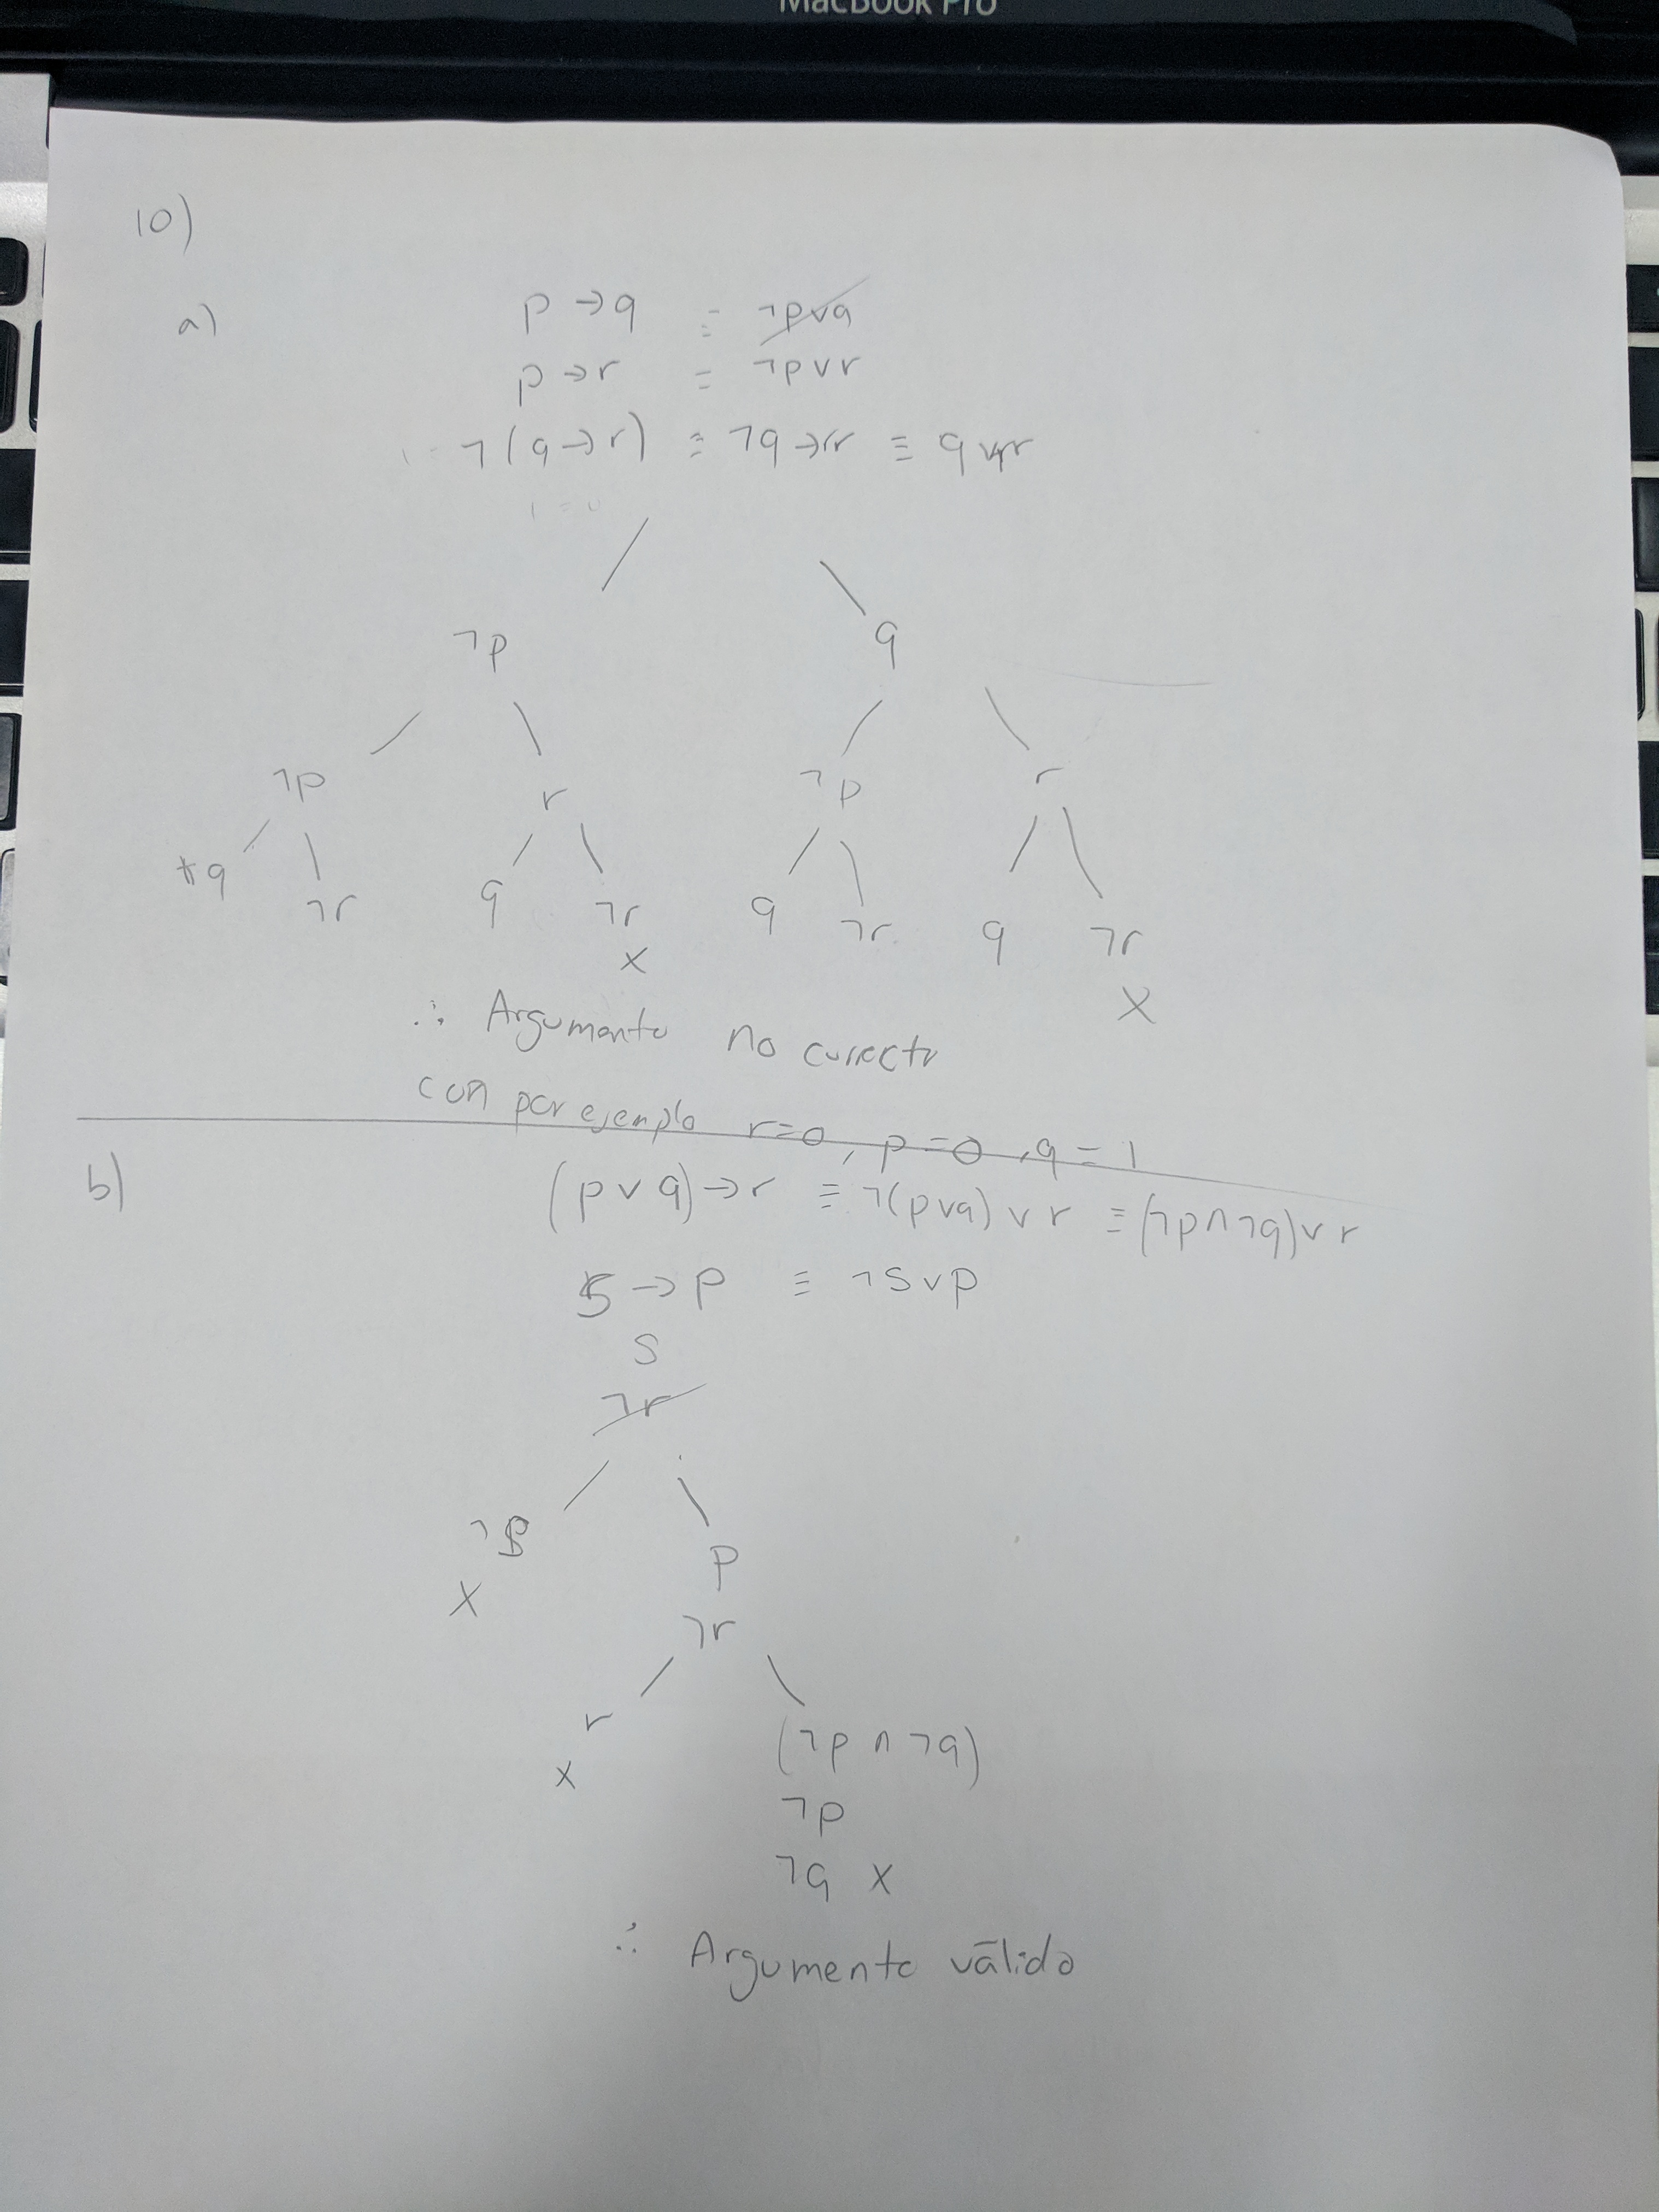 MacBook Pro
10)
a) p → q ≡ ¬p∨q
p → r ≡ ¬p∨r
¬(q → r) ≡ ¬q → ¬r ≡ q ∨ ¬r
¬p q
¬p r ¬p r
*q ¬r q ¬r q ¬r q ¬r
x X
∴ Argumento no correcto
con por ejemplo r=0, p=0, q=1
b) (p ∨ q) → r ≡ ¬(p∨q) ∨ r ≡ (¬p∧¬q)∨ r
s → p ≡ ¬s∨p
s
¬r
¬s p
x ¬r
r (¬p ∧ ¬q)
x ¬p
¬q x
∴ Argumento válido